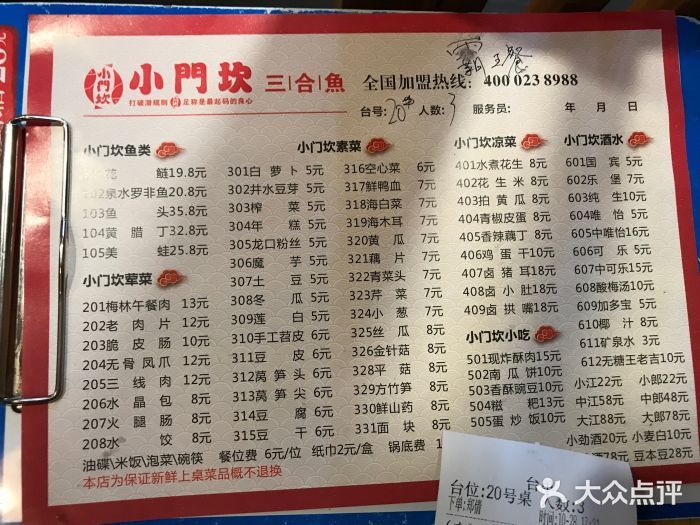 小門坎
小門坎 三合魚
打破潜规则 足称是最起码的良心
全国加盟热线: 400 023 8988
霸王餐
台号: 20# 人数: 3 服务员: 年 月 日
小门坎鱼类
花 鲢19.8元
102泉水罗非鱼20.8元
103鱼 头35.8元
104黄 腊 丁32.8元
105美 蛙25.8元
小门坎荤菜
201梅林午餐肉 13元
202老 肉 片 12元
203脆 皮 肠 10元
204无 骨 凤 爪 12元
205三 线 肉 12元
206水 晶 包 8元
207火 腿 肠 8元
208水 饺 8元
小门坎素菜
301白 萝 卜 5元
302井水豆芽 5元
303榨 菜 5元
304年 糕 5元
305龙口粉丝 5元
306魔 芋 5元
307土 豆 5元
308冬 瓜 5元
309莲 白 5元
310手工苕皮 6元
311豆 皮 6元
312莴 笋 头 6元
313莴 笋 尖 6元
314豆 腐 6元
315豆 筋 6元
316空心菜 6元
317鲜鸭血 7元
318海白菜 7元
319海木耳 7元
320黄 瓜 7元
321藕 片 7元
322青菜头 7元
323芹 菜 7元
324小 葱 7元
325丝 瓜 8元
326金针菇 8元
328平 菇 8元
329方竹笋 8元
330鲜山药 8元
331面 块 8元
小门坎凉菜
401水煮花生 8元
402花 生 米 8元
403拍 黄 瓜 8元
404青椒皮蛋 8元
405香辣藕丁 8元
406鸡 蛋 干10元
407卤 猪 耳18元
408卤 小 肚18元
409卤 拱 嘴18元
小门坎小吃
501现炸酥肉15元
502南 瓜 饼10元
503香酥豌豆10元
504糍 粑13元
505蛋 炒 饭10元
小门坎酒水
601国 宾 5元
602乐 堡 7元
603纯 生10元
604唯 怡 5元
605中唯怡16元
606可 乐 5元
607中可乐15元
608酸梅汤10元
609加多宝 5元
610椰 汁 8元
611矿泉水 3元
612无糖王老吉10元
小江22元 小郎22元
中江58元 中郎48元
大江88元 大郎78元
小劲酒20元 小麦白10元
78元 豆本豆28元
油碟\米饭\泡菜\碗筷 餐位费 6元/位 纸巾2元/盒 锅底费
本店为保证新鲜上桌菜品概不退换
台位:20号桌 人数:3
下单:郑倩 时间:10-28
大众点评